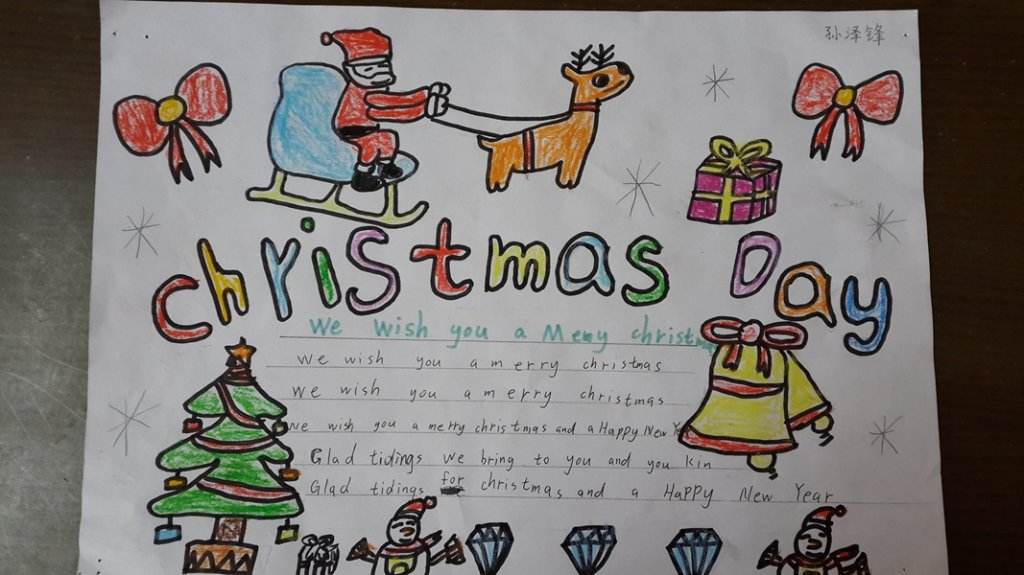 孙泽锋
Christmas Day
We wish you a Meny christm
we wish you a merry christmas
we wish you a merry christmas
we wish you a merry christmas and a Happy New Y
Glad tidings we bring to you and you kin
Glad tidings for christmas and a HaPPy New Year